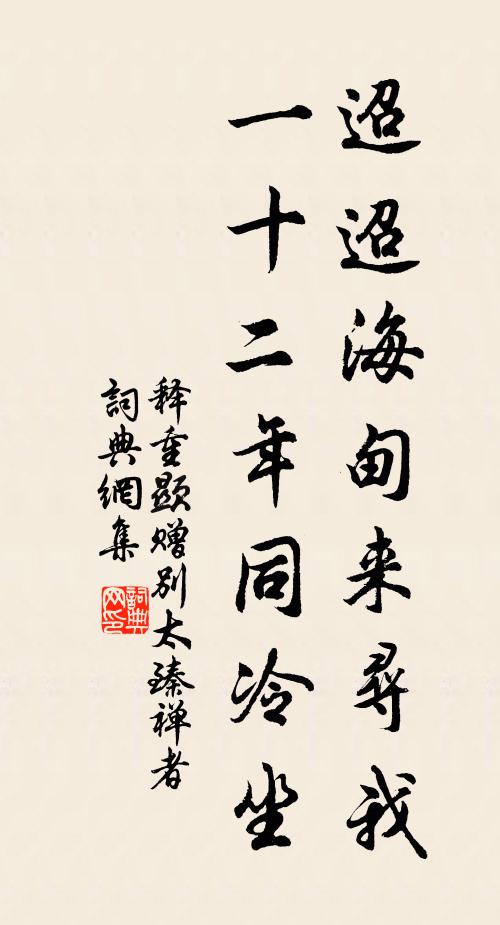 迢迢海甸来尋我
一十二年同冷坐
释重顯赠别太臻禅者
詞典網集
詞典网印